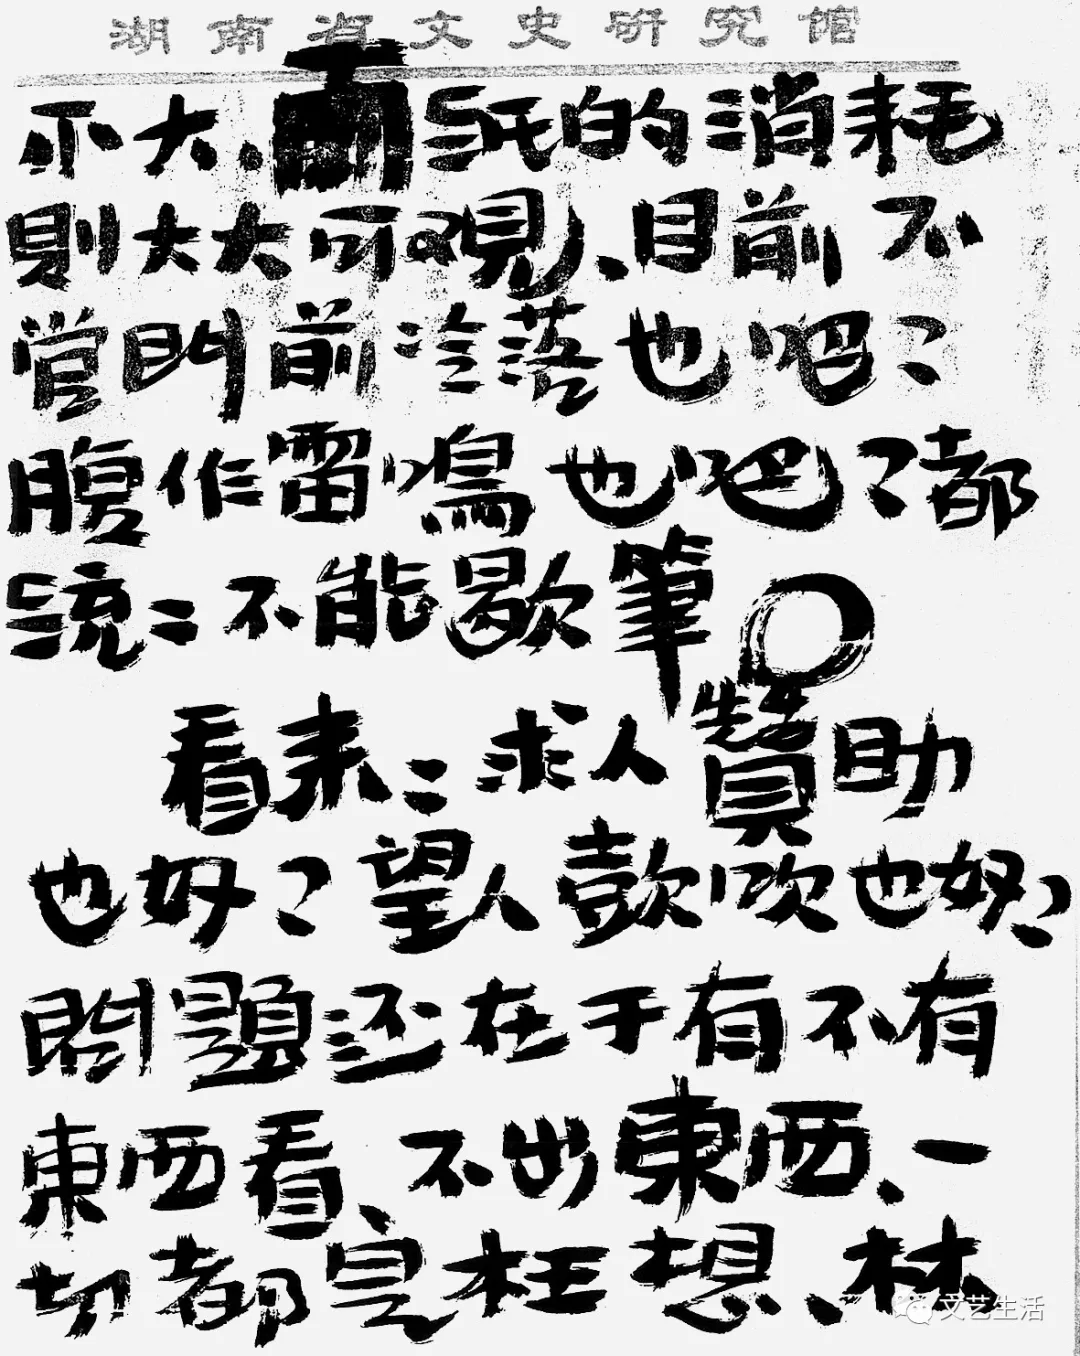 湖南省文史研究馆
不大.而纸的消耗
則大大可观、目前不
管門前冷落也吧;
腹作雷鳴也吧;都
统:不能歇筆。
看来:求人贊助
也好;望人鼓吹也好;
問題还在于有不有
東西看、不出東西、一
切都是枉想、林
文艺生活